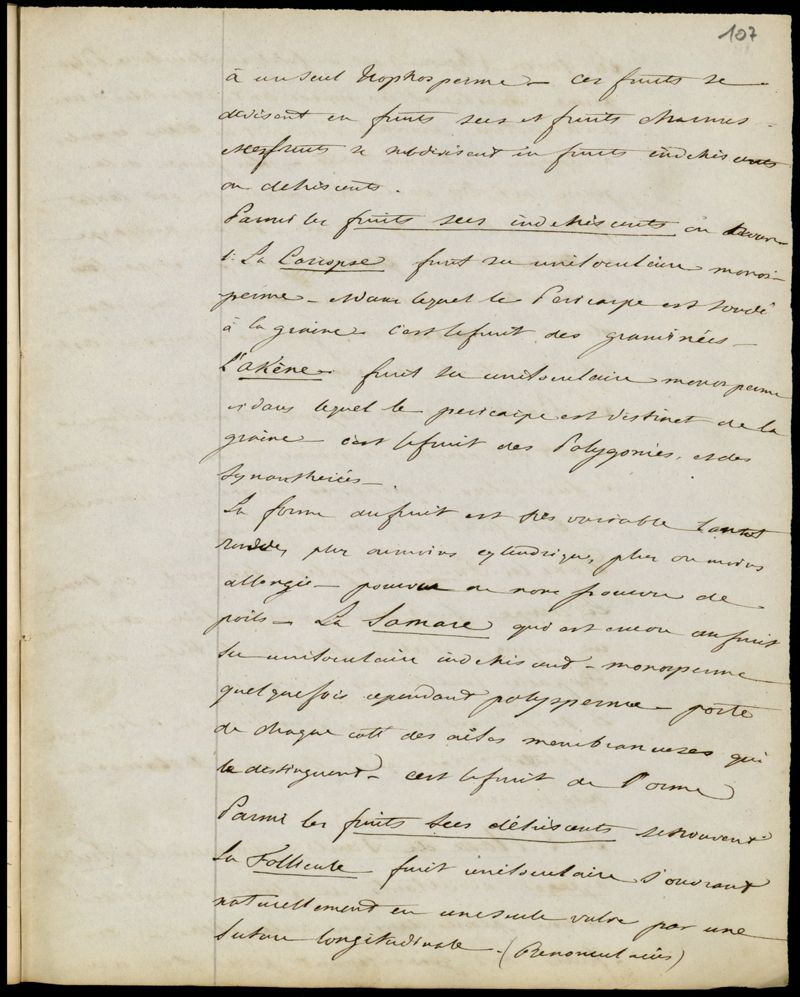 107
à un seul trophosperme – ces fruits se
divisent en fruits secs et fruits charnus –
ces fruits se subdivisent en fruits indehiscents
ou dehiscents.
Parmi les fruits secs indehiscents on
1: La Cariopse fruit sec uniloculaire monos-
perme – et dans lequel le Pericarpe est soudé
à la graine – c'est le fruit des graminées –
L'akène – fruit sec uniloculaire monosperme
et dans lequel le pericarpe est distinct de la
graine – c'est le fruit des Polygonies, et des
synantherées –
La forme du fruit est très variable tantot
plus ou moins cylindrique, plus ou moins
allongée – pourvu ou non pourvu de
poils – La Samare qui est encore un fruit
sec uniloculaire indehiscent – monosperme
quelquefois cependant polysperme – porte
de chaque coté des ailes membraneuses qui
le distinguent – c'est le fruit de l'orme
Parmi les fruits secs déhiscents se trouvent
La Follicule – fruit uniloculaire s'ouvrant
naturellement en une seule valve par une
suture longitudinale – (Renonculacées)